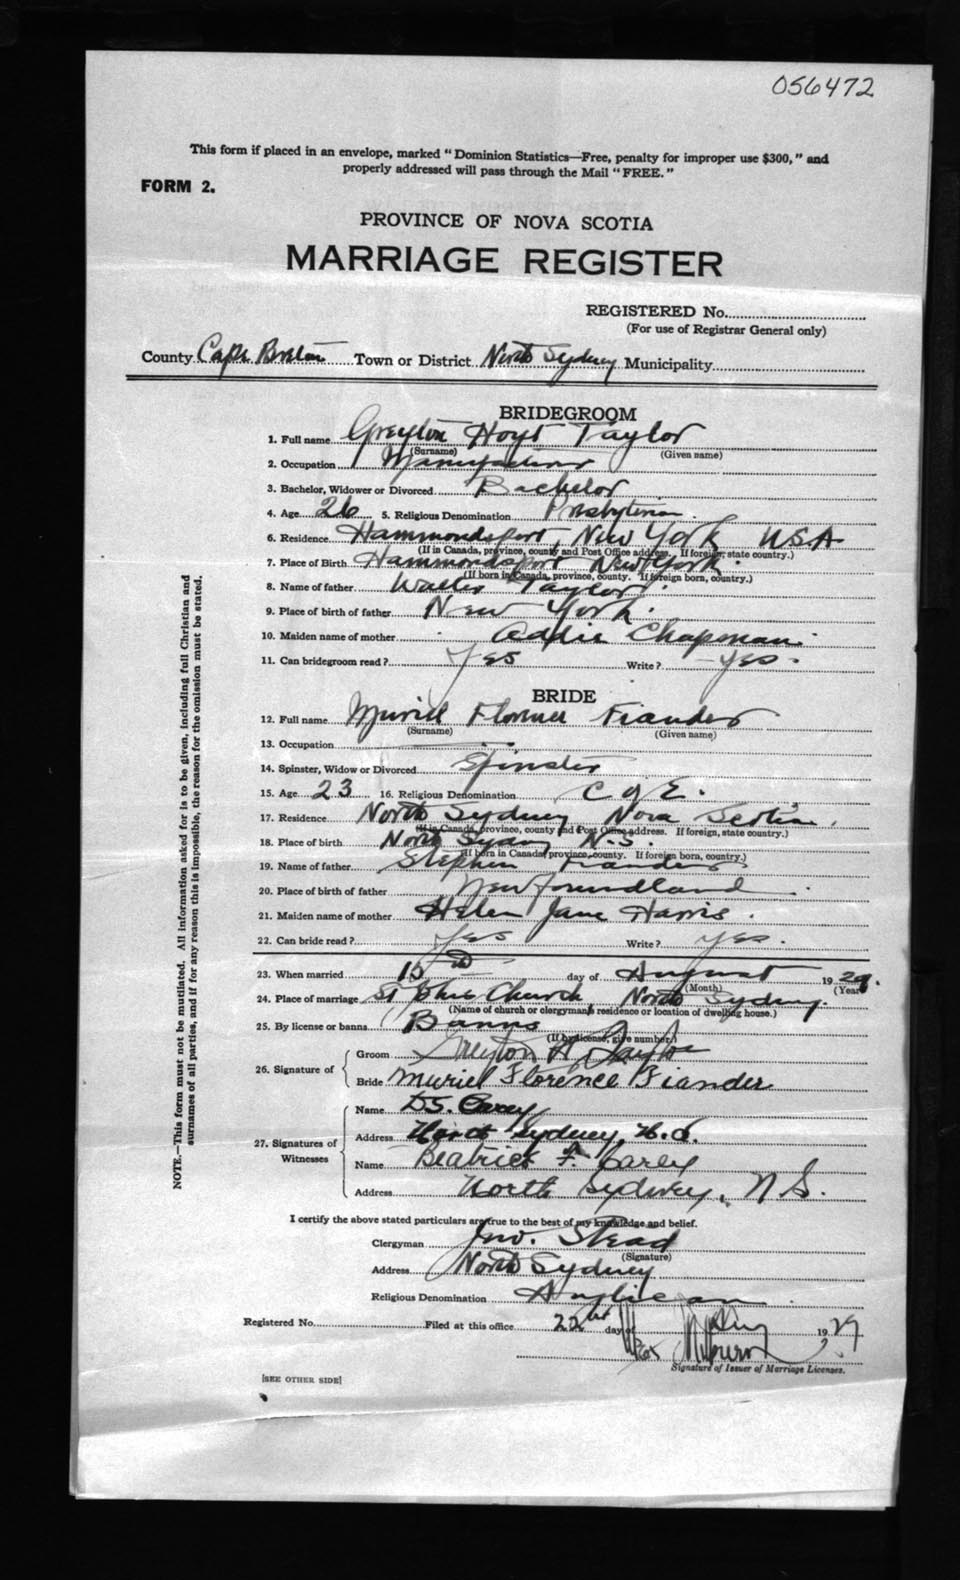 056472
This form if placed in an envelope, marked "Dominion Statistics—Free, penalty for improper use $300," and
properly addressed will pass through the Mail "FREE."
FORM 2.
PROVINCE OF NOVA SCOTIA
MARRIAGE REGISTER
REGISTERED No.
(For use of Registrar General only)
County Cape Breton Town or District North Sydney Municipality
BRIDEGROOM
1. Full name Greyton Hoyt Taylor
(Surname) (Given name)
2. Occupation Manufacturer
3. Bachelor, Widower or Divorced Bachelor
4. Age 26 5. Religious Denomination Presbyterian
6. Residence Hammondsport, New York USA
(If in Canada, province, county and Post Office address. If foreign, state country.)
7. Place of Birth Hammondsport New York.
(If born in Canada, province, county. If foreign born, country.)
8. Name of father Walter Taylor
9. Place of birth of father New York.
10. Maiden name of mother Addie Chapman
11. Can bridegroom read? Yes Write? Yes.
BRIDE
12. Full name Muriel Florence Fiander
(Surname) (Given name)
13. Occupation
14. Spinster, Widow or Divorced Spinster
15. Age 23 16. Religious Denomination C of E.
17. Residence North Sydney Nova Scotia.
(If in Canada, province, county and Post Office address. If foreign, state country.)
18. Place of birth North Sydney N.S.
(If born in Canada, province, county. If foreign born, country.)
19. Name of father Stephen Fiander
20. Place of birth of father Newfoundland
21. Maiden name of mother Helen Jane Harris.
22. Can bride read? Yes Write? Yes.
23. When married 15th day of August 1929.
(Month) (Year)
24. Place of marriage St Johns Church, North Sydney.
(Name of church or clergyman's residence or location of dwelling house.)
25. By license or banns Banns
(If by license, give number.)
26. Signature of
Groom Greyton H Taylor
Bride Muriel Florence Fiander
27. Signatures of Witnesses
Name D.S. Carey
Address North Sydney, N.S.
Name Beatrice F. Carey
Address North Sydney, N.S.
I certify the above stated particulars are true to the best of my knowledge and belief.
Clergyman Jno. Stead
(Signature)
Address North Sydney
Religious Denomination Anglican
Registered No. Filed at this office 22nd day of Aug 1929
Signature of Issuer of Marriage Licenses.
[SEE OTHER SIDE]
NOTE.—This form must not be mutilated. All information asked for is to be given, including full Christian and
surnames of all parties, and if for any reason this is impossible, the reason for the omission must be stated.